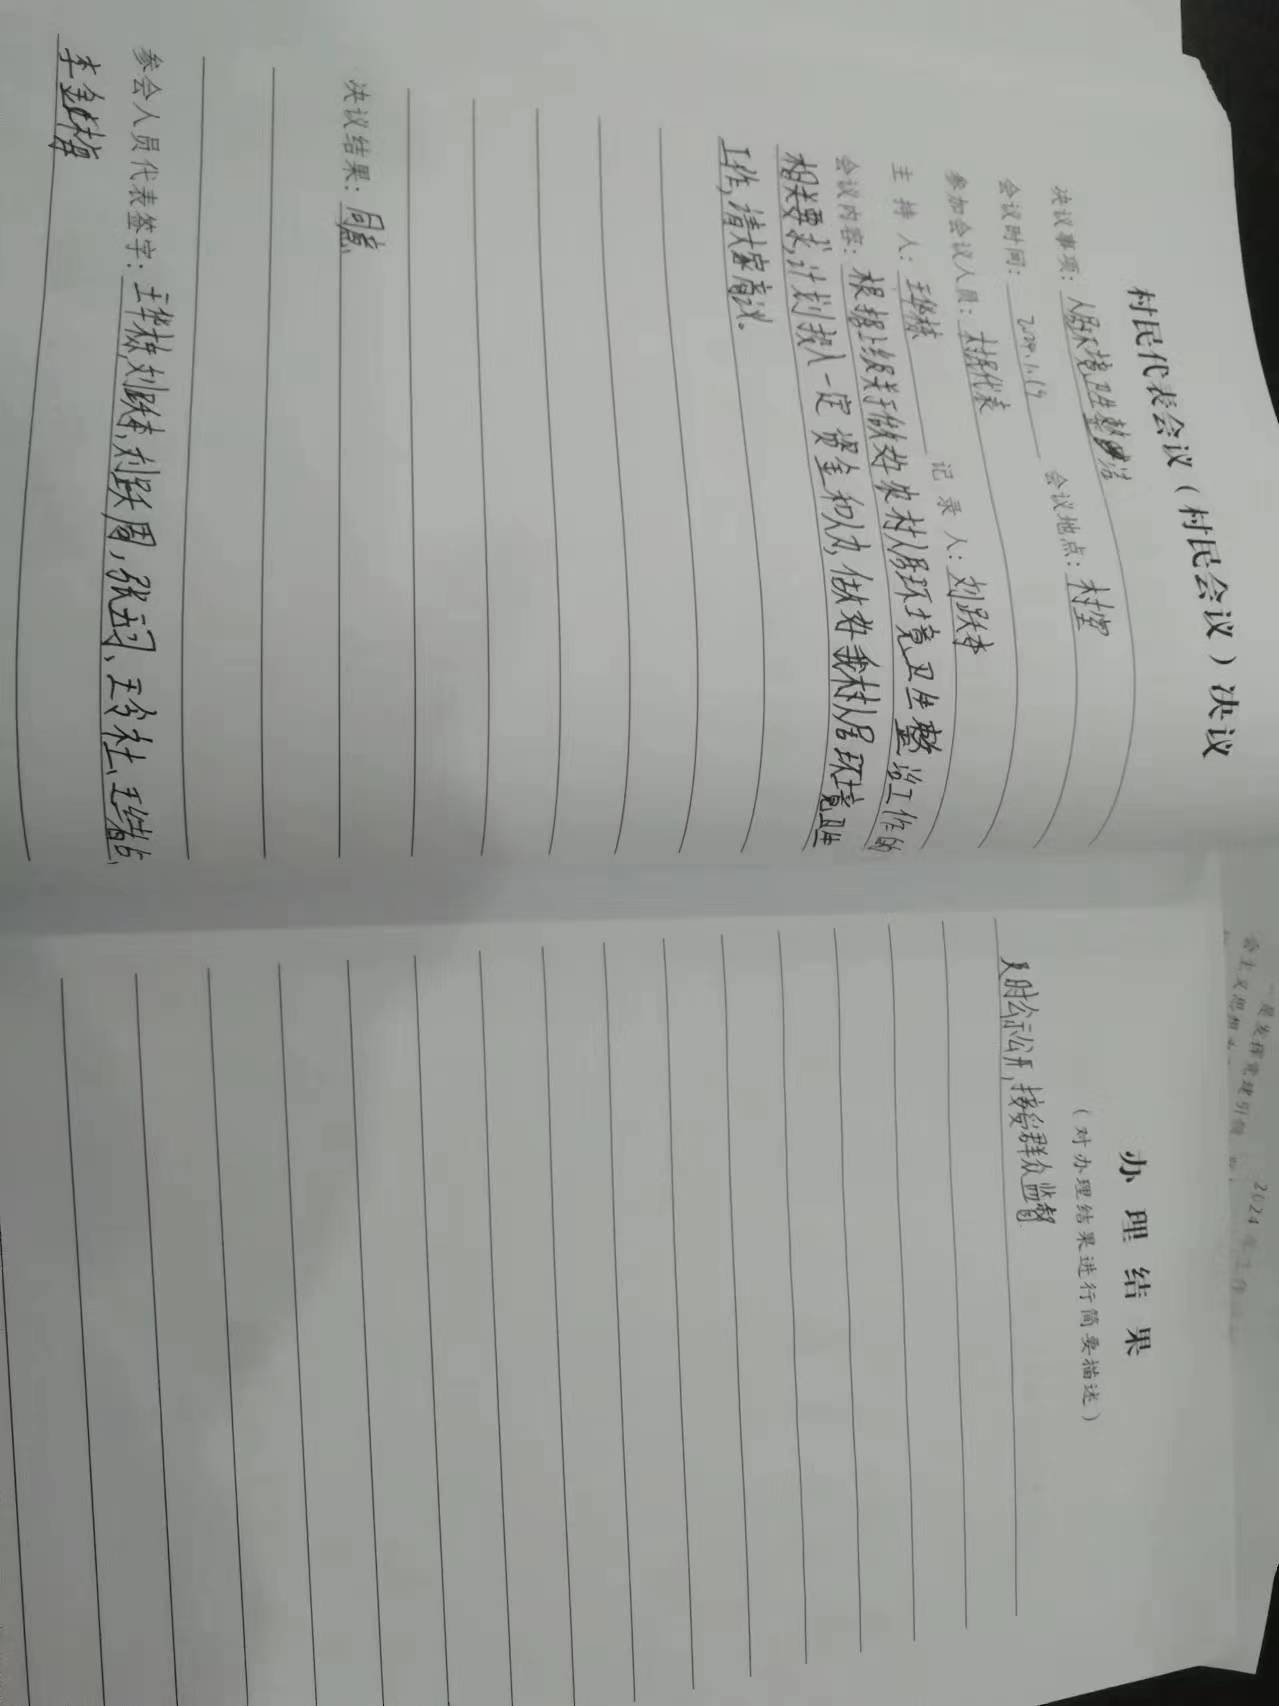 村民代表会议（村民会议）决议
决议事项：人居环境卫生整治
会议时间： 会议地点：村室
参加会议人员：村民代表
主持人：王华林 记录人：刘跃本
会议内容：根据上级关于做好农村人居环境卫生整治工作的
相关要求，计划投入一定资金和人力，做好我村人居环境卫生
工作，请大家商议。
决议结果：同意
参会人员代表签字：王华林，刘跃本，刘跃周，张、王社、王
李
办理结果
（对办理结果进行简要描述）
及时公示公开，接受群众监督
2024年工作
一是发挥党建引领
会主义思想